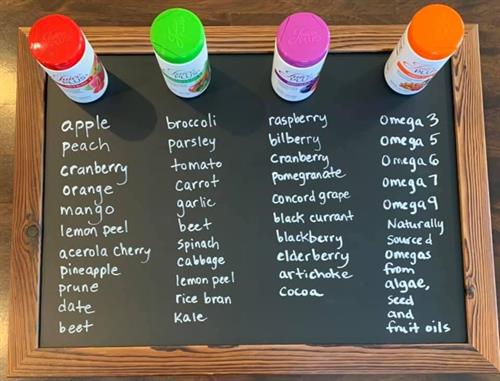 apple
peach
cranberry
orange
mango
lemon peel
acerola cherry
pineapple
prune
date
beet
broccoli
parsley
tomato
carrot
garlic
beet
spinach
cabbage
lemon peel
rice bran
kale
raspberry
bilberry
cranberry
pomegranate
concord grape
black currant
blackberry
elderberry
artichoke
cocoa
omega 3
omega 5
omega 6
omega 7
omega 9
Naturally
sourced
omegas
from
algae,
seed
and
fruit oils